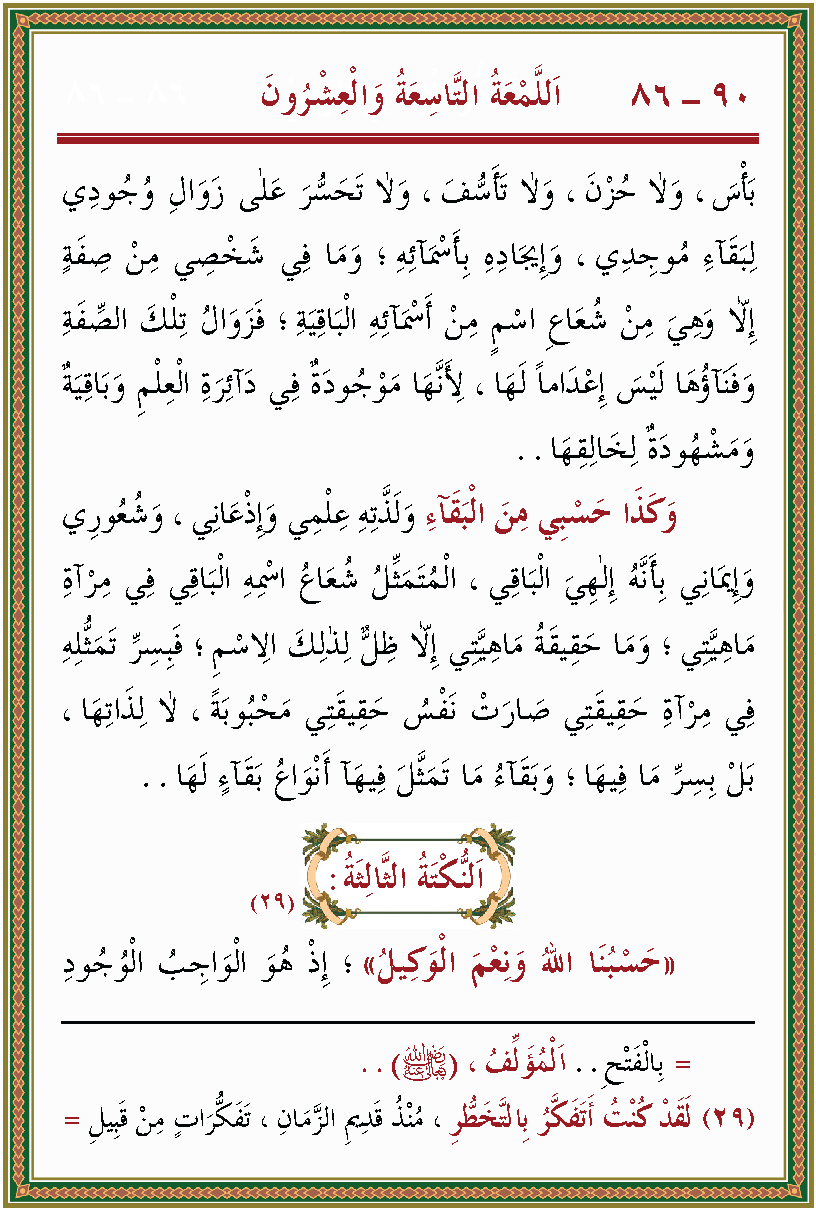 ٩٠ – ٨٦ اَللَّمْعَةُ التَّاسِعَةُ وَالْعِشْرُونَ
بَأْسَ ، وَلاٰ حُزْنَ ، وَلاٰ تَأَسُّفَ ، وَلاٰ تَحَسُّرَ عَلٰى زَوَالِ وُجُودِي
لِبَقَآءِ مُوجِدِي ، وَإِيجَادِهِ بِأَسْمَآئِهِ ؛ وَمَا فِي شَخْصِي مِنْ صِفَةٍ
إِلاّٰ وَهِيَ مِنْ شُعَاعِ اسْمٍ مِنْ أَسْمَآئِهِ الْبَاقِيَةِ ؛ فَزَوَالُ تِلْكَ الصِّفَةِ
وَفَنَآؤُهَا لَيْسَ إِعْدَاماً لَهَا ، لِأَنَّهَا مَوْجُودَةٌ فِي دَآئِرَةِ الْعِلْمِ وَبَاقِيَةٌ
وَمَشْهُودَةٌ لِخَالِقِهَا . .
وَكَذَا حَسْبِي مِنَ الْبَقَآءِ وَلَذَّتِهِ عِلْمِي وَإِذْعَانِي ، وَشُعُورِي
وَإِيمَانِي بِأَنَّهُ إِلٰهِيَ الْبَاقِي ، الْمُتَمَثِّلُ شُعَاعُ اسْمِهِ الْبَاقِي فِي مِرْآةِ
مَاهِيَّتِي ؛ وَمَا حَقِيقَةُ مَاهِيَّتِي إِلاّٰ ظِلٌّ لِذٰلِكَ الِاسْمِ ؛ فَبِسِرِّ تَمَثُّلِهِ
فِي مِرْآةِ حَقِيقَتِي صَارَتْ نَفْسُ حَقِيقَتِي مَحْبُوبَةً ، لاٰ لِذَاتِهَا ،
بَلْ بِسِرِّ مَا فِيهَا ؛ وَبَقَآءُ مَا تَمَثَّلَ فِيهَآ أَنْوَاعُ بَقَآءٍ لَهَا . .
اَلنُّكْتَةُ الثَّالِثَةُ : (٢٩)
«حَسْبُنَا اللهُ وَنِعْمَ الْوَكِيلُ» ؛ إِذْ هُوَ الْوَاجِبُ الْوُجُودِ
= بِالْفَتْحِ . . اَلْمُؤَلِّفُ ، (رَضِيَ اللهُ تَعَالٰى عَنْهُ) . .
(٢٩) لَقَدْ كُنْتُ أَتَفَكَّرُ بِالتَّخَطُّرِ ، مُنْذُ قَدِيمِ الزَّمَانِ ، تَفَكُّرَاتٍ مِنْ قَبِيلِ =